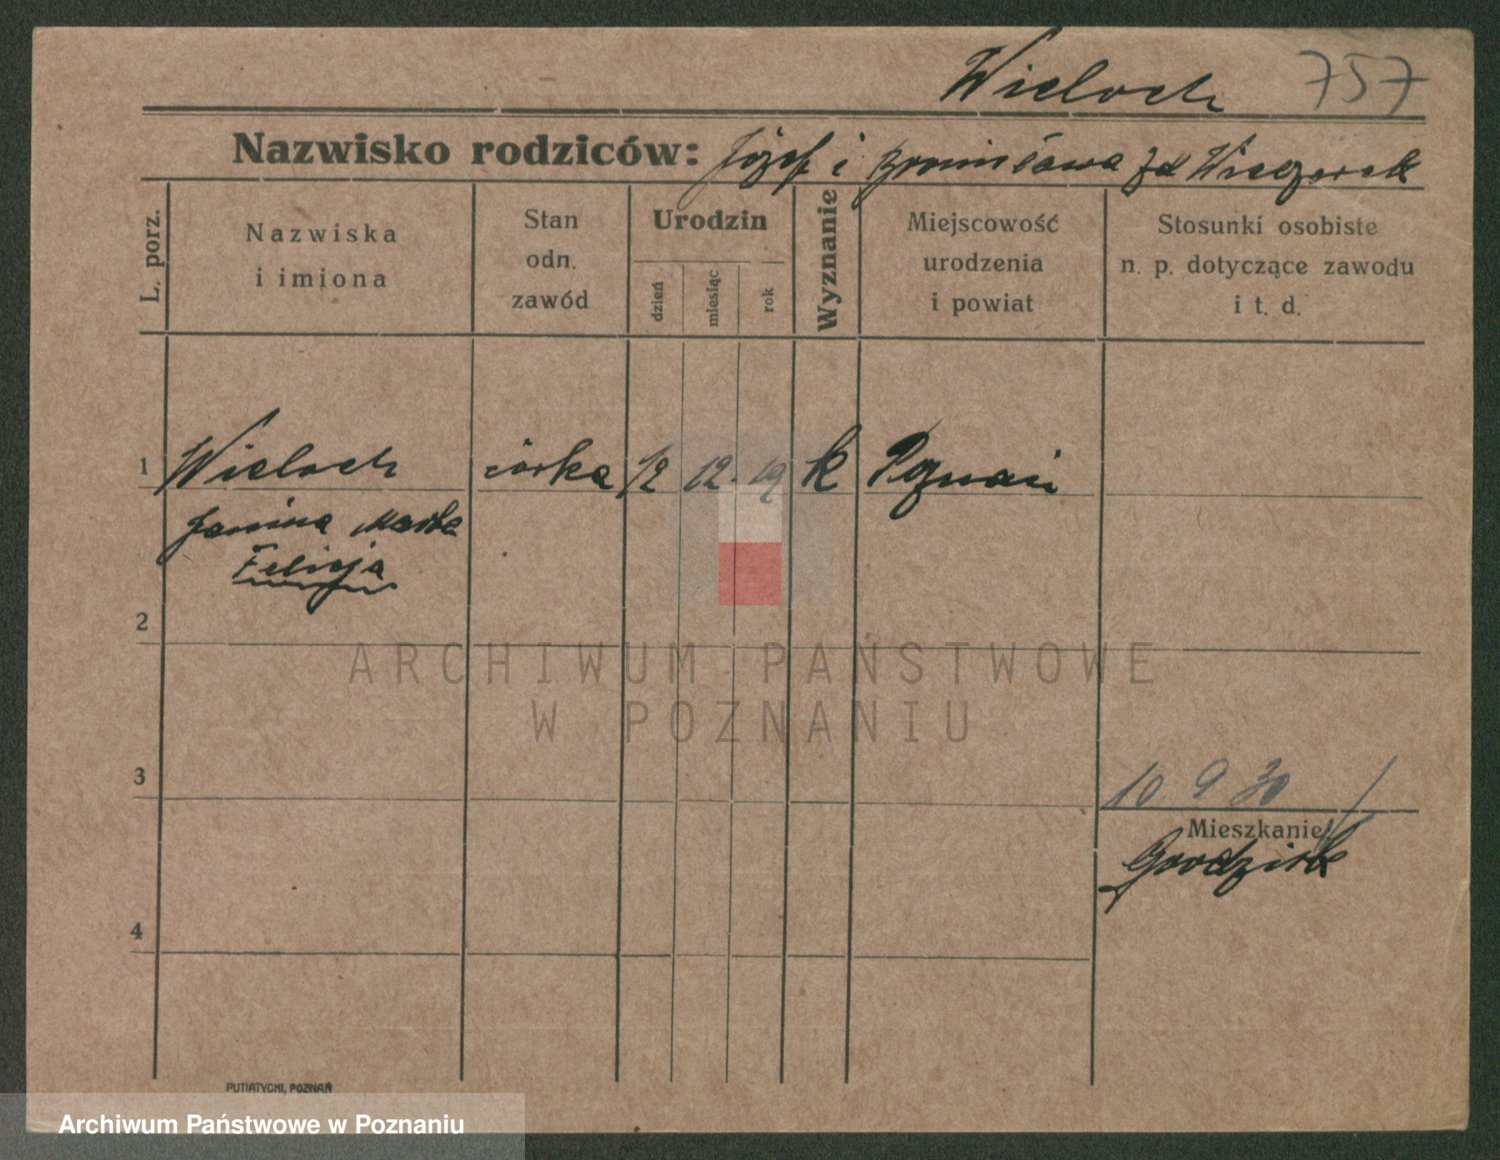 Wieloch 757
Nazwisko rodziców: Józef i Bronisława zd Wieczorek
L. porz.
Nazwiska
i imiona
Stan
odn.
zawód
Urodzin
dzień
miesiąc
rok
Wyznanie
Miejscowość
urodzenia
i powiat
Stosunki osobiste
n. p. dotyczące zawodu
i t. d.
1 Wieloch córka 12 12. 19 k Poznań
Janina Marta
Felicja
2
ARCHIWUM PAŃSTWOWE
W POZNANIU
3
10 9 30
Mieszkanie
Grodziska
4
PUTIATYCKI, POZNAŃ
Archiwum Państwowe w Poznaniu